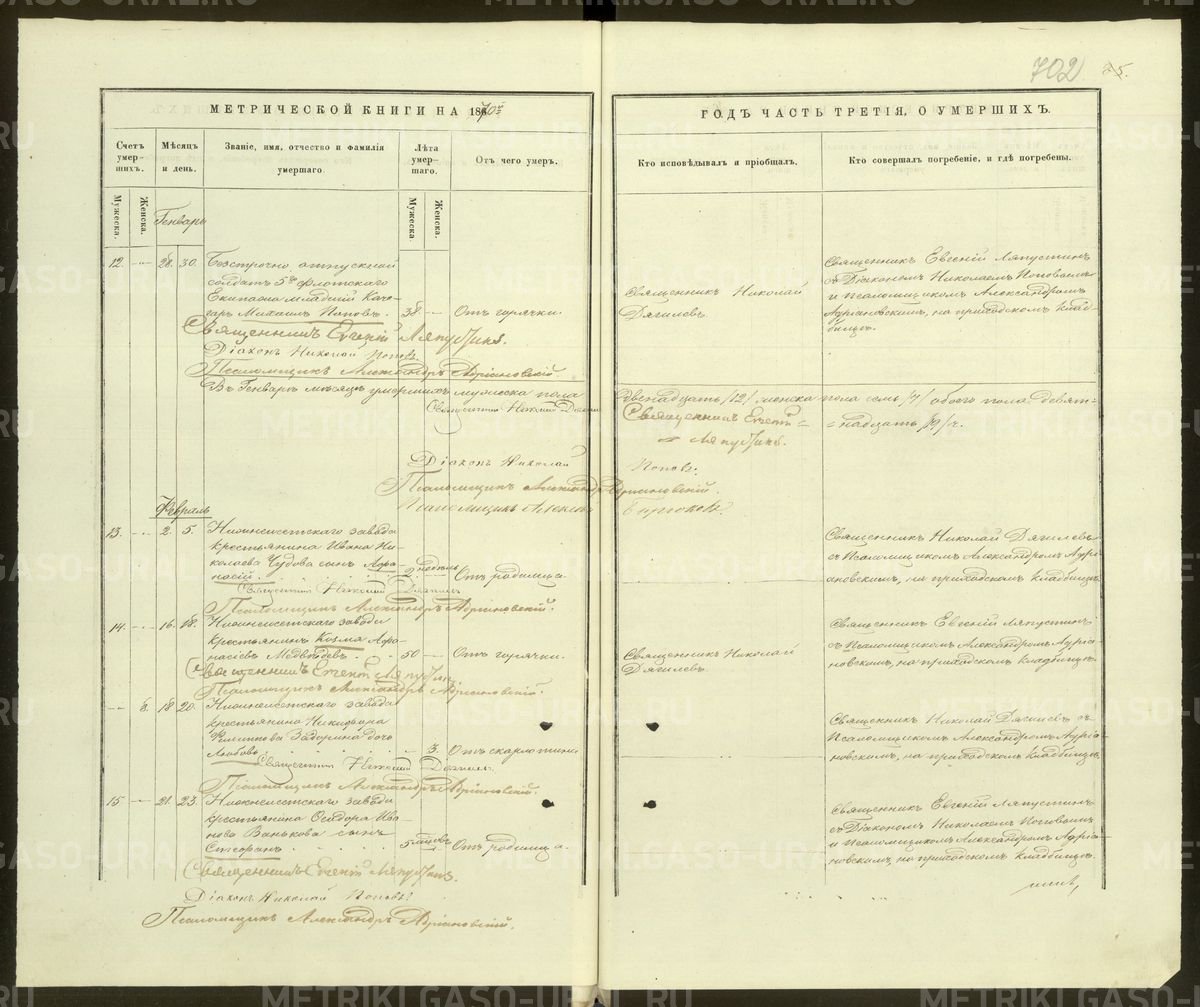 702
25.
МЕТРИЧЕСКОЙ КНИГИ НА 1870й
ГОДЪ ЧАСТЬ ТРЕТІЯ, О УМЕРШИХЪ.
Счетъ умер-шихъ.
Мѣсяцъ и день.
Званіе, имя, отчество и фамилія умершаго.
Лѣта умер-шаго.
Отъ чего умеръ.
Кто исповѣдывалъ и пріобщалъ.
Кто совершалъ погребеніе, и гдѣ погребены.
Мужеска.
Женска.
Мужеска.
Женска.
Генварь
12. 28. 30. Безсрочно отпускной
солдатъ 5го Флотскаго
Екипажа младшій Коче-
гаръ Михаилъ Поповъ. 38 Отъ горячки.
Священникъ Николай
Дягилевъ.
Священникъ Евгеній Ляпустинъ
съ Діакономъ Николаемъ Поповымъ
и Псаломщикомъ Александромъ
Адріановскимъ, на приходскомъ клад-
бищѣ.
Священникъ Евгеній Ляпустинъ.
Діаконъ Николай Поповъ.
Псаломщикъ Александръ Адріановскій.
Въ Генварѣ мѣсяцѣ умершихъ мужеска пола
двенадцать /12/ женска пола семь /7/ обоего пола девят-
надцать /19/ч.
Священникъ Николай Дягилевъ
Священникъ Евгеній
Ляпустинъ.
Діаконъ Николай Поповъ.
Псаломщикъ Александръ Адріановскій.
Псаломщикъ Алексѣй
Февраль
13. 2. 5. Нижнеисетскаго завода
крестьянина Ивана Ни-
колаева Чудова сынъ Афа-
насій. 2 недѣль Отъ родимца
Священникъ Николай Дягилевъ
съ Псаломщикомъ Александромъ Адрі-
ановскимъ, на приходскомъ кладбищѣ.
Священникъ Николай Дягилевъ
Псаломщикъ Александръ Адріановскій.
14. 16. 18. Нижнеисетскаго завода
крестьянинъ Козма Афа-
насіевъ Медвѣдевъ. 50 Отъ горячки.
Священникъ Николай
Дягилевъ.
Священникъ Евгеній Ляпустинъ
съ Псаломщикомъ Александромъ Адріа-
новскимъ, на приходскомъ кладбищѣ.
Священникъ Евгеній Ляпустинъ
Псаломщикъ Александръ Адріановскій.
8. 18 20. Нижнеисетскаго завода
крестьянина Никифора
Филиппова Задорина дочь
Любовь. 3. Отъ скарлатины
Священникъ Николай Дягилевъ съ
Псаломщикомъ Александромъ Адріа-
новскимъ, на приходскомъ кладбищѣ.
Священникъ Николай Дягилевъ
Псаломщикъ Александръ Адріановскій.
15 21. 23. Нижнеисетскаго завода
крестьянина Ѳедора Ива-
нова Ванькова сынъ
Стефанъ. 5 мѣсяцовъ Отъ родимца.
Священникъ Евгеній Ляпустинъ
съ Діакономъ Николаемъ Поповымъ
и Псаломщикомъ Александромъ Адріа-
новскимъ, на приходскомъ кладбищѣ.
Священникъ Евгеній Ляпустинъ.
Діаконъ Николай Поповъ
Псаломщикъ Александръ Адріановскій.
METRIKI.GASO-URAL.RU